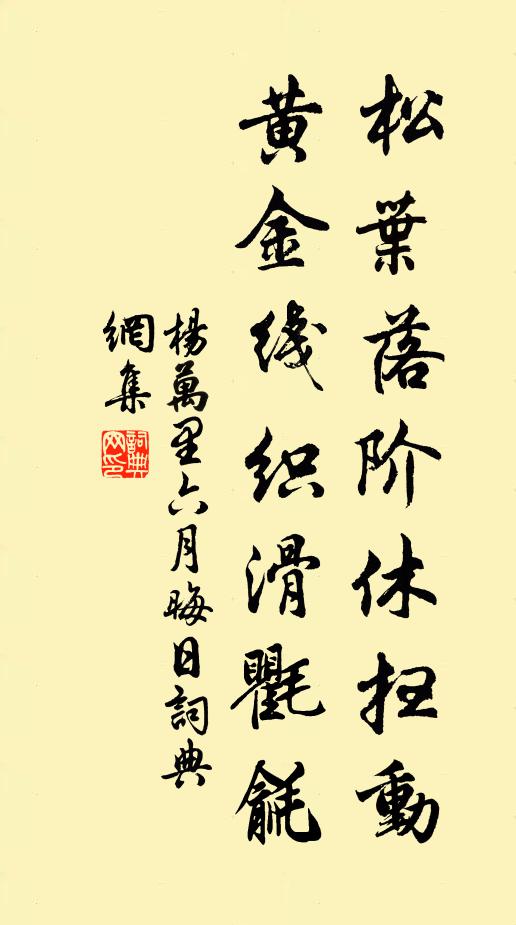 松葉落阶休扫動
黄金线织滑氍毹
楊萬里六月晦日詞典
網集
詞典网印